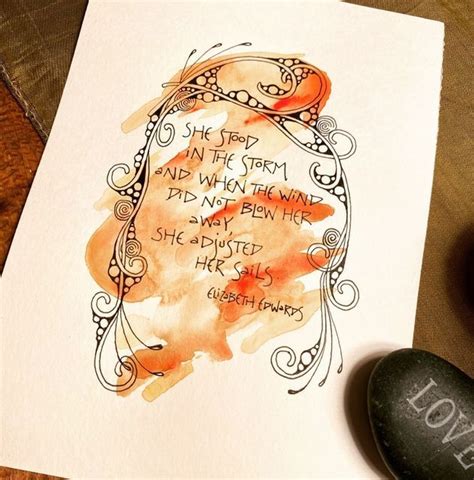 SHE STOOD
IN THE STORM
AND WHEN THE WIND
DID NOT BLOW HER
AWAY,
SHE ADJUSTED
HER SAILS
ELIZABETH EDWARDS
LOVE